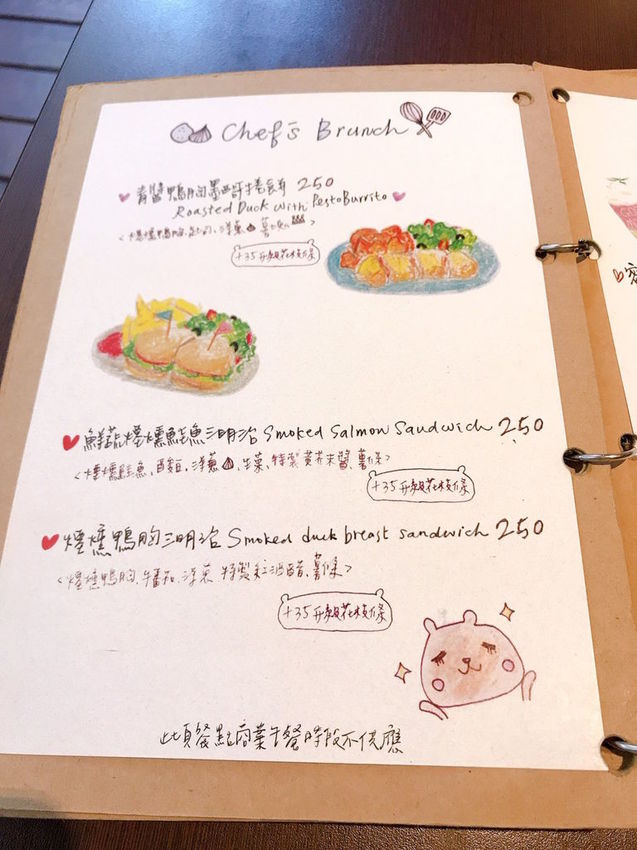 Chef's Brunch
青醬鴨胸墨西哥捲餅 250
Roasted Duck with Pesto Burrito
+35升級花枝條
鮮蔬煙燻鮭魚三明治 Smoked Salmon Sandwich 250
<煙燻鮭魚、酸豆、洋蔥、生菜、特製黃芥末醬、薯條>
+35升級花枝條
煙燻鴨胸三明治 Smoked duck breast sandwich 250
<煙燻鴨胸、牛番茄、洋蔥 特製紅酒醋、薯條>
+35升級花枝條
此頁餐點商業午餐時段不供應